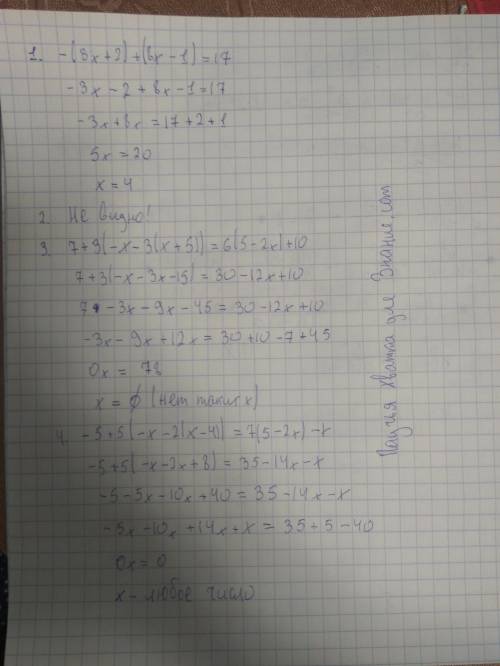 1. -(3x+2)+(8x-1)=17
-3x-2+8x-1=17
-3x+8x=17+2+1
5x=20
x=4
2. Не видно!
3. 7+3(-x-3(x+5))=6(5-2x)+10
7+3(-x-3x-15)=30-12x+10
7-3x-9x-45=30-12x+10
-3x-9x+12x=30+10-7+45
0x=78
x=∅(нет таких x)
4. -5+5(-x-2(x-4))=7(5-2x)-x
-5+5(-x-2x+8)=35-14x-x
-5-5x-10x+40=35-14x-x
-5x-10x+14x+x=35+5-40
0x=0
x-любое число
Паучья хватка для Знание.com